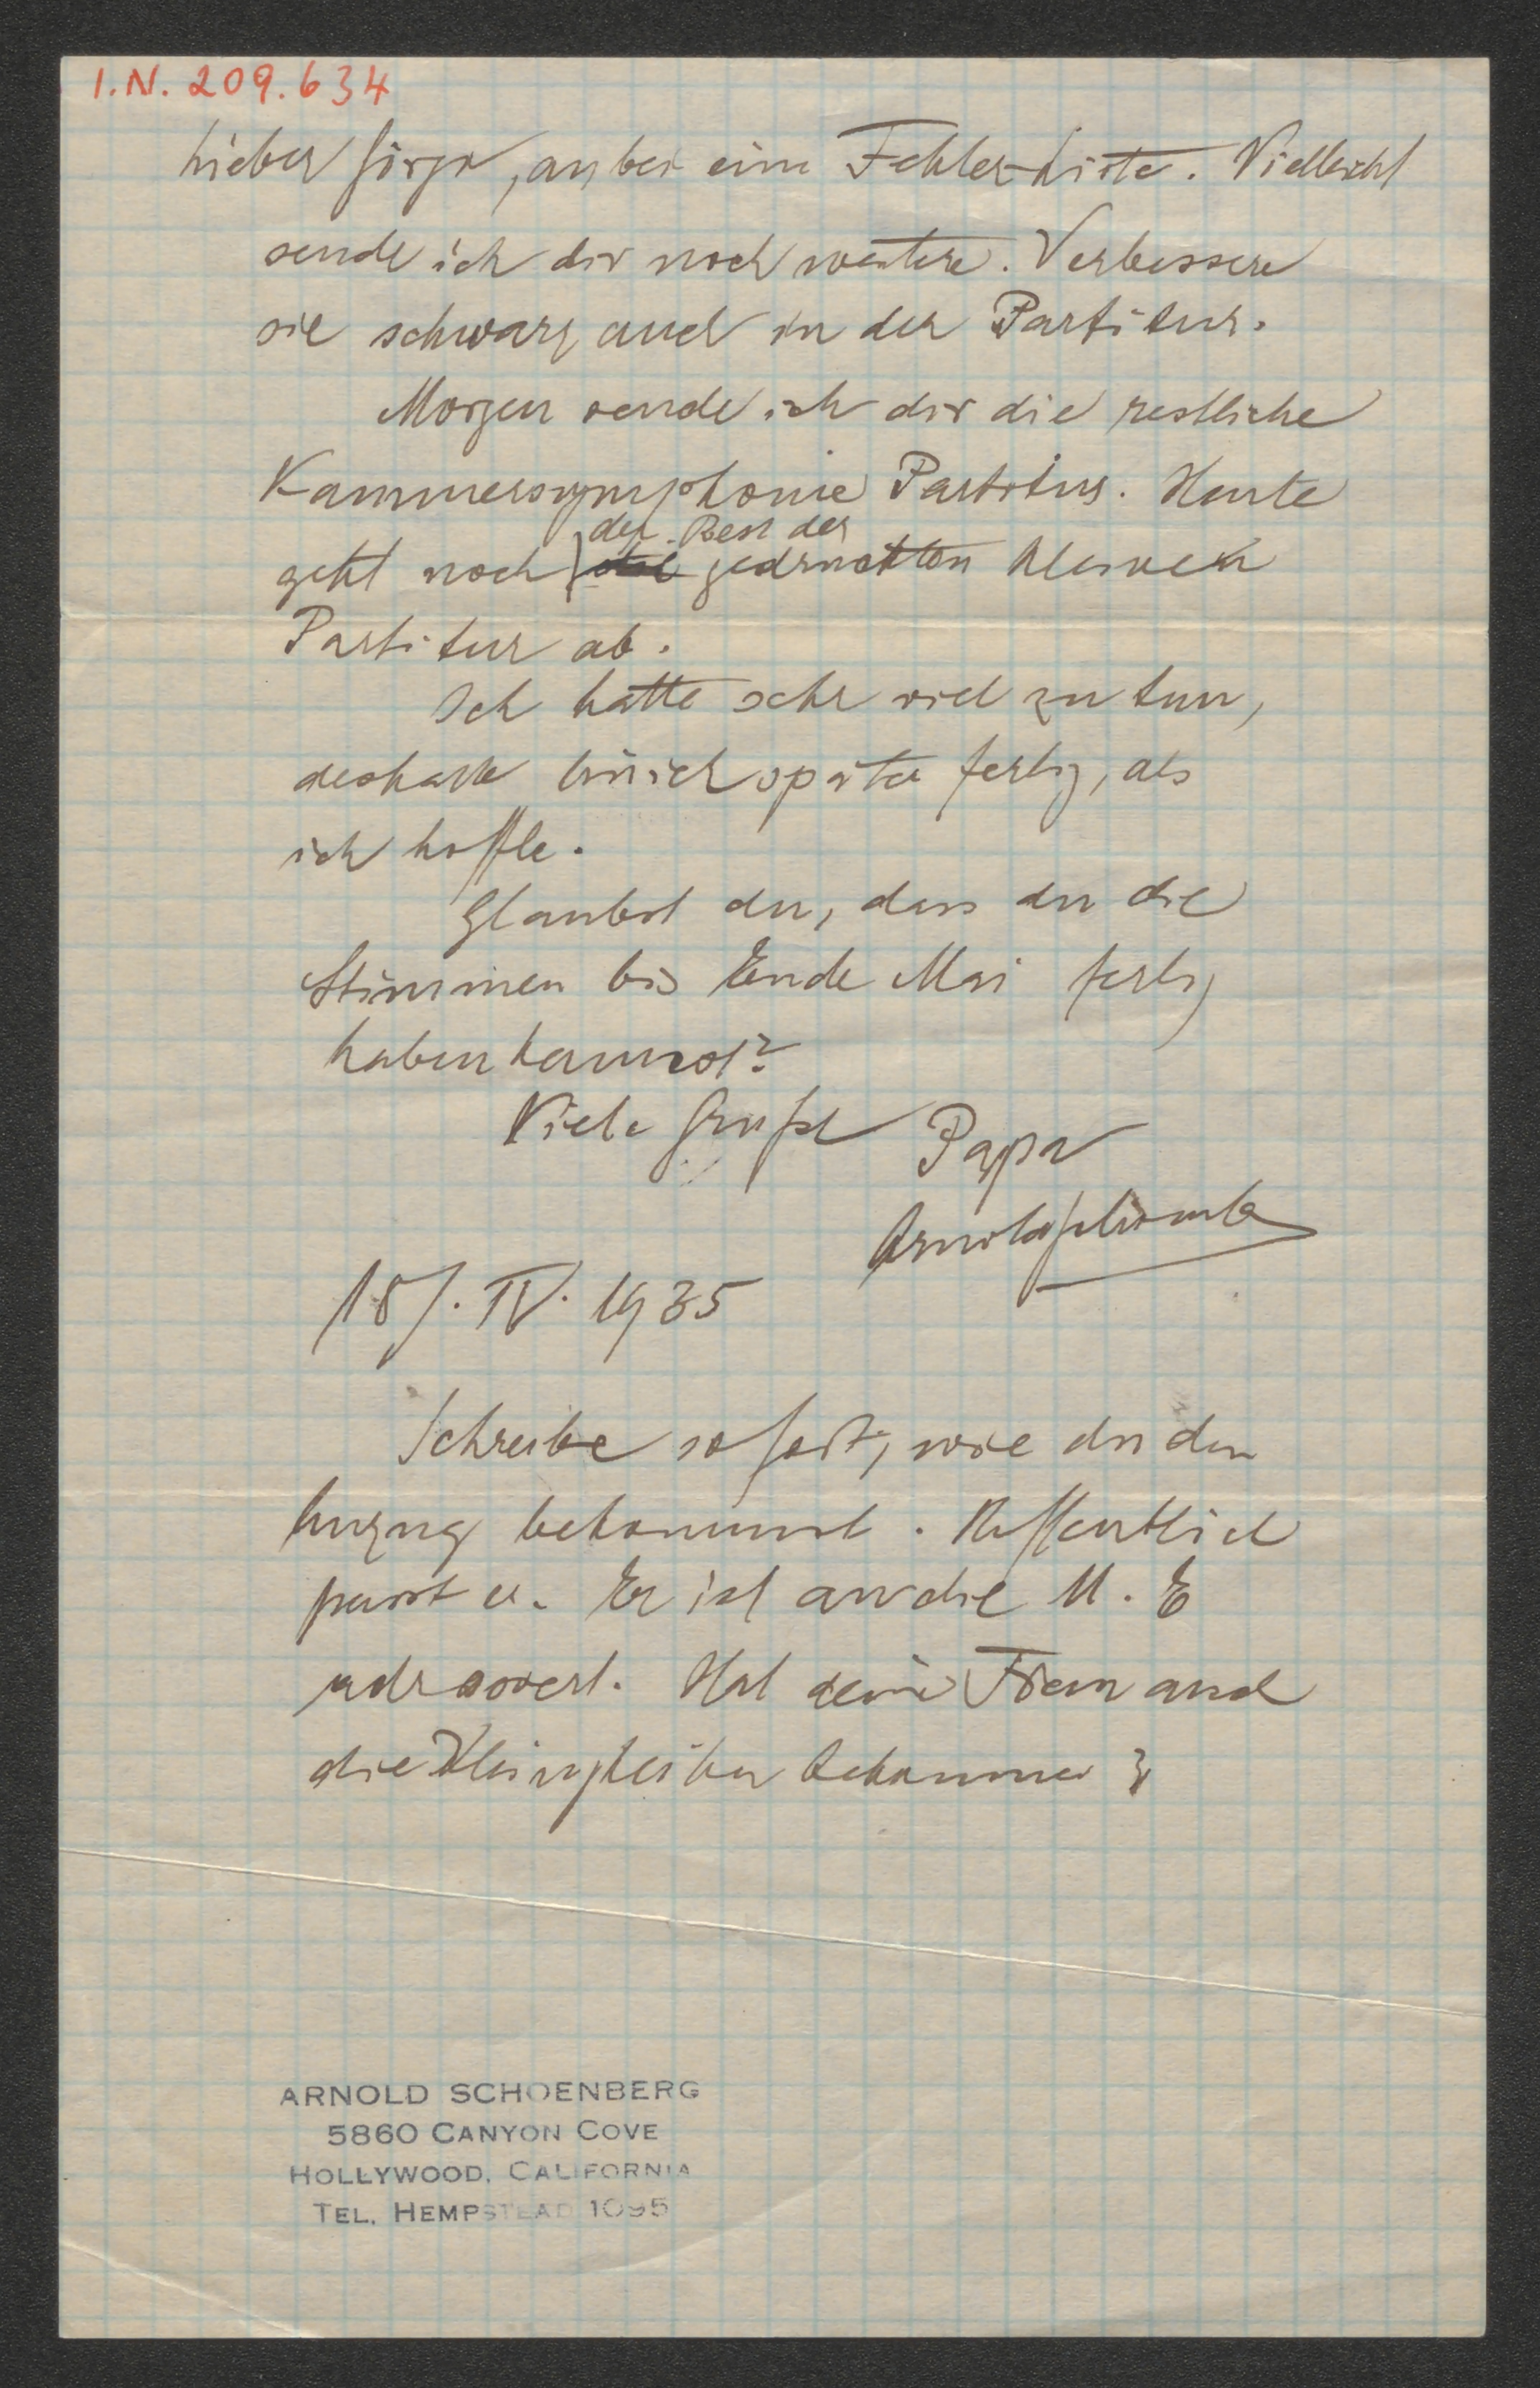 I.N. 209.634
Lieber Görgi, anbei eine Fehler-Liste. Vielleicht
sende ich dir noch weitere. Verbessere
sie schwarz auch in der Partitur.
Morgen sende ich dir die restliche
Kammersymphonie Partitur. Heute
der Rest der
geht noch die gedruckten kleinen
Partitur ab.
Ich hatte sehr viel zu tun,
deshalb bin ich später fertig, als
ich hoffte.
Glaubst du, dass du die
Stimmen bis Ende Mai fertig
haben kannst?
Viele Grüße Papa
Arnold Schönberg
18/. IV. 1935
Schreibe sofort, wie du den
Anzug bekommst. Hoffentlich
passt er. Er ist an die U. E
adressiert. Hat deine Frau auch
die bekommen?
ARNOLD SCHOENBERG
5860 CANYON COVE
HOLLYWOOD, CALIFORNIA
TEL. HEMPSTEAD 1095